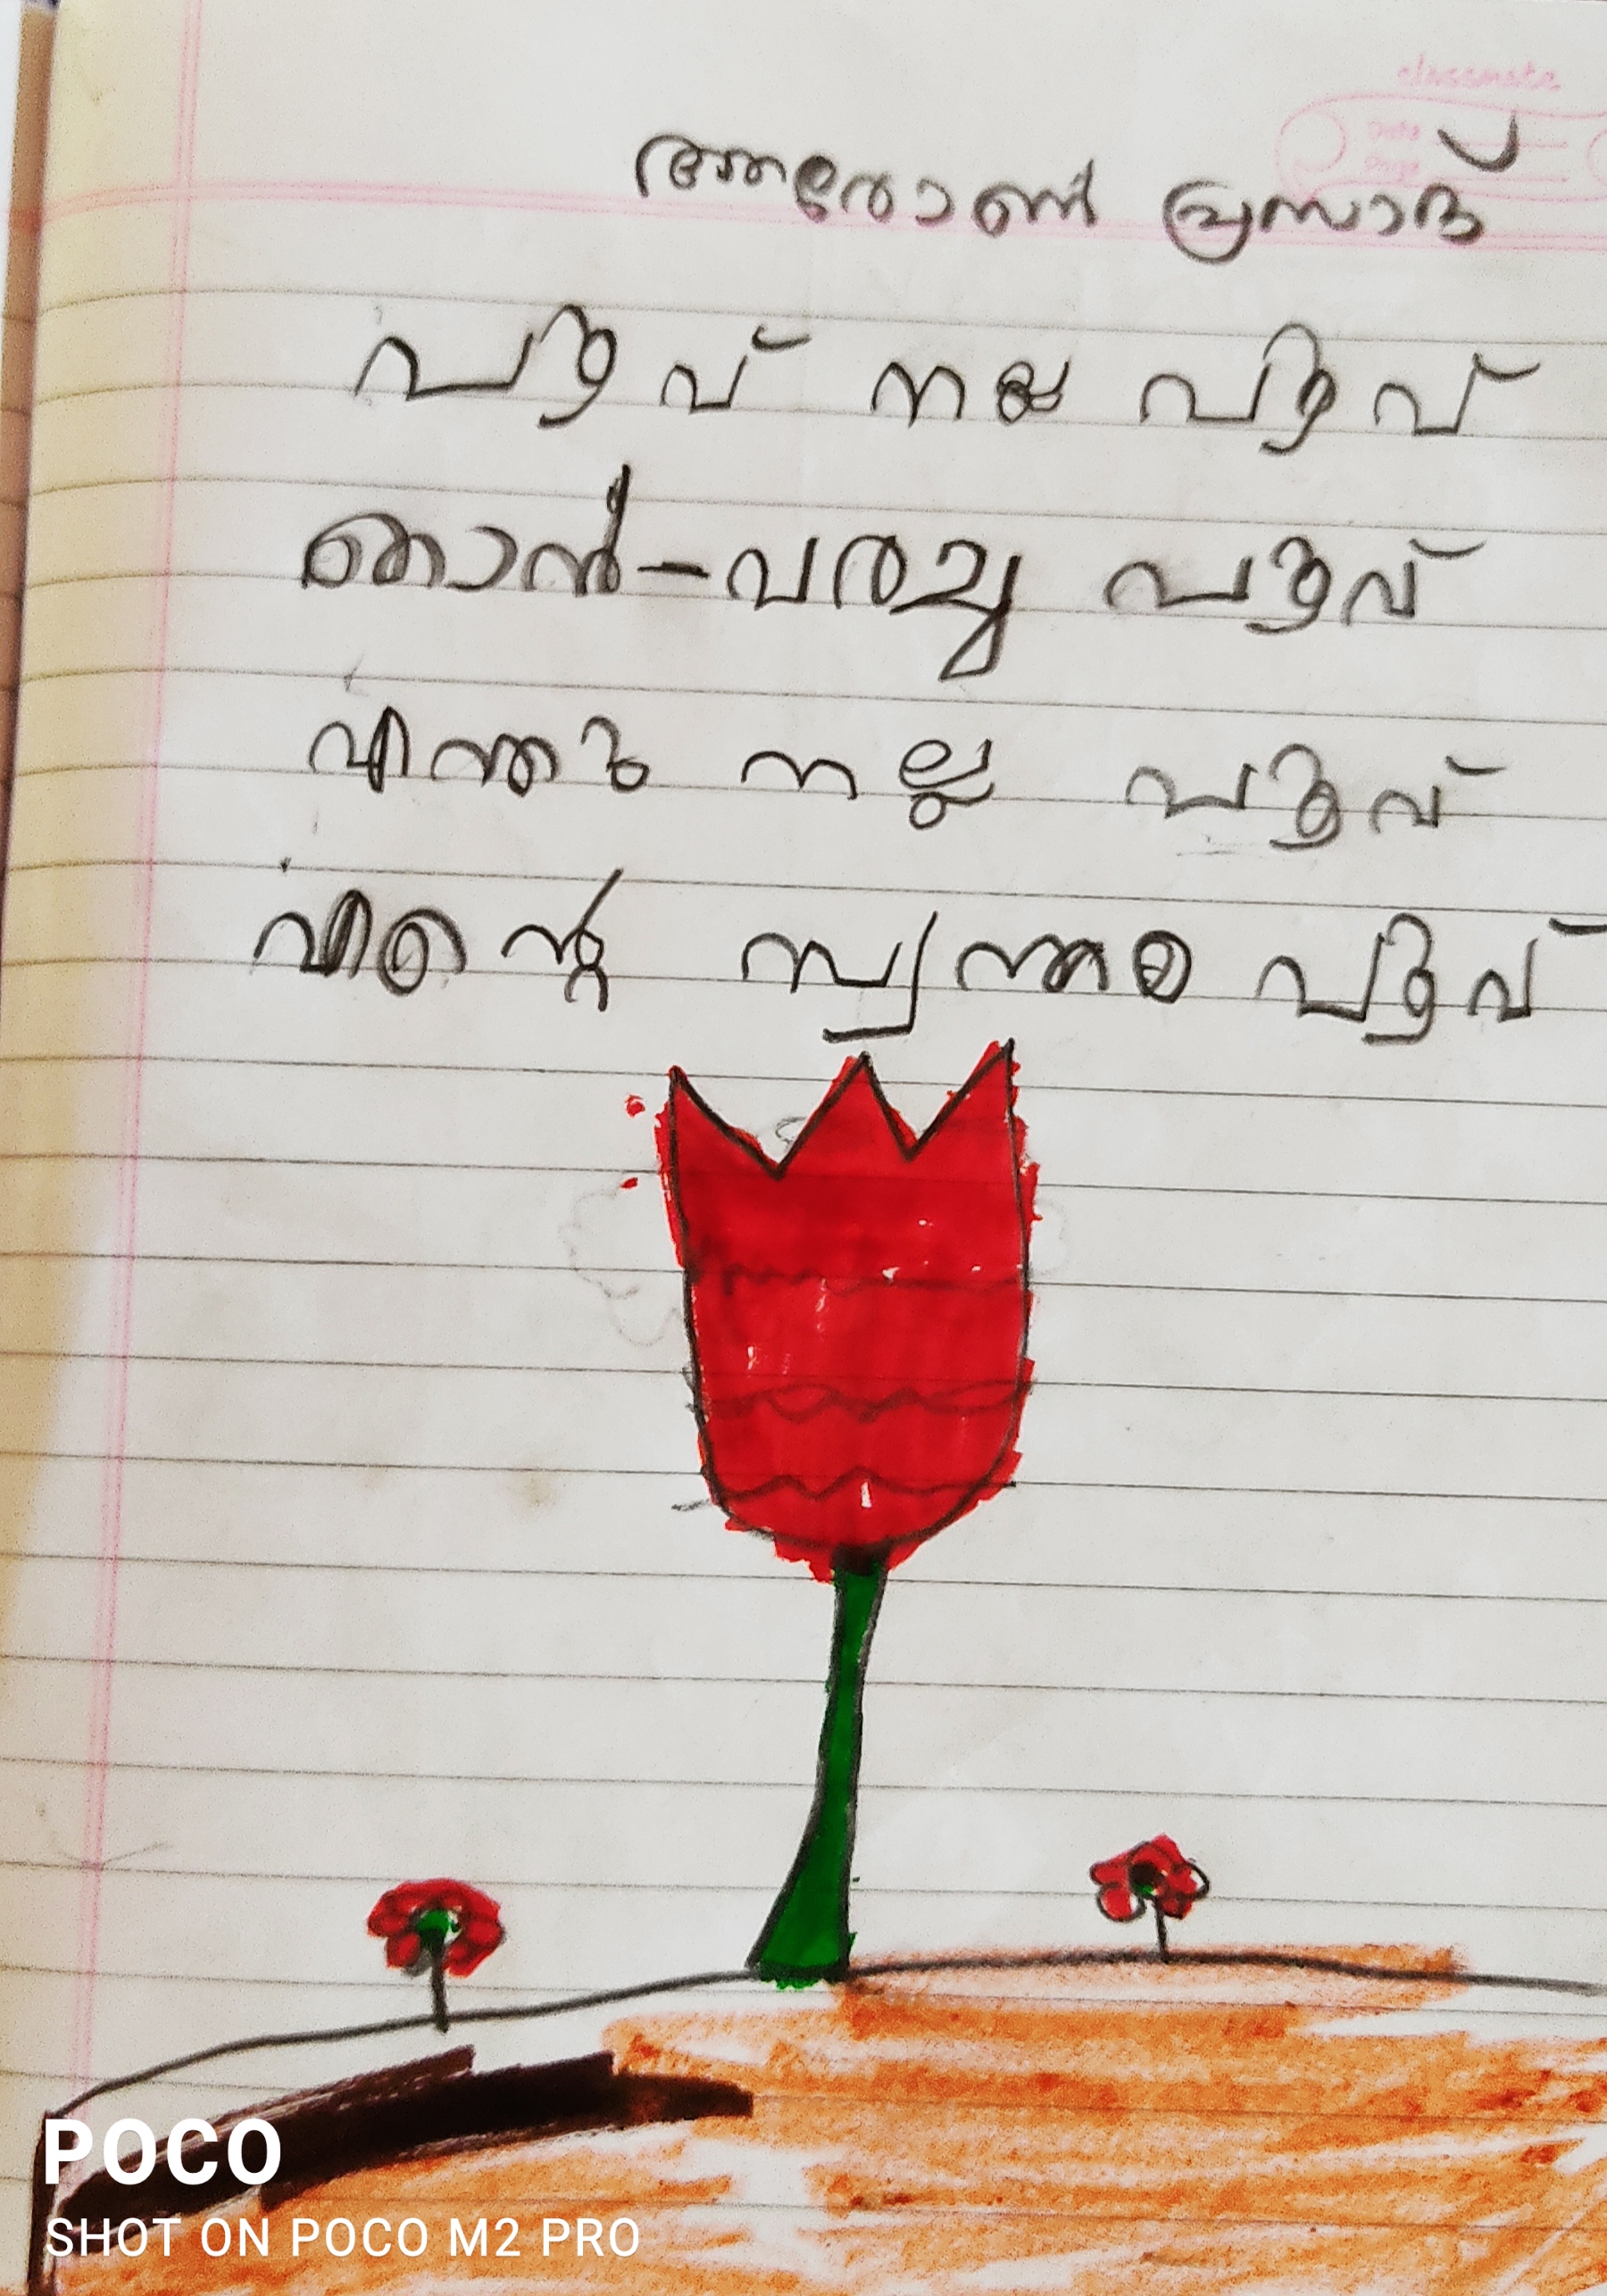 classmate
Date
Page
ആരോൺ പ്രസാദ്
പൂവ് നല്ല പൂവ്
ഞാൻ-വരച്ച പൂവ്
എന്തു നല്ല പൂവ്
എന്റെ സ്വന്തം പൂവ്
POCO
SHOT ON POCO M2 PRO